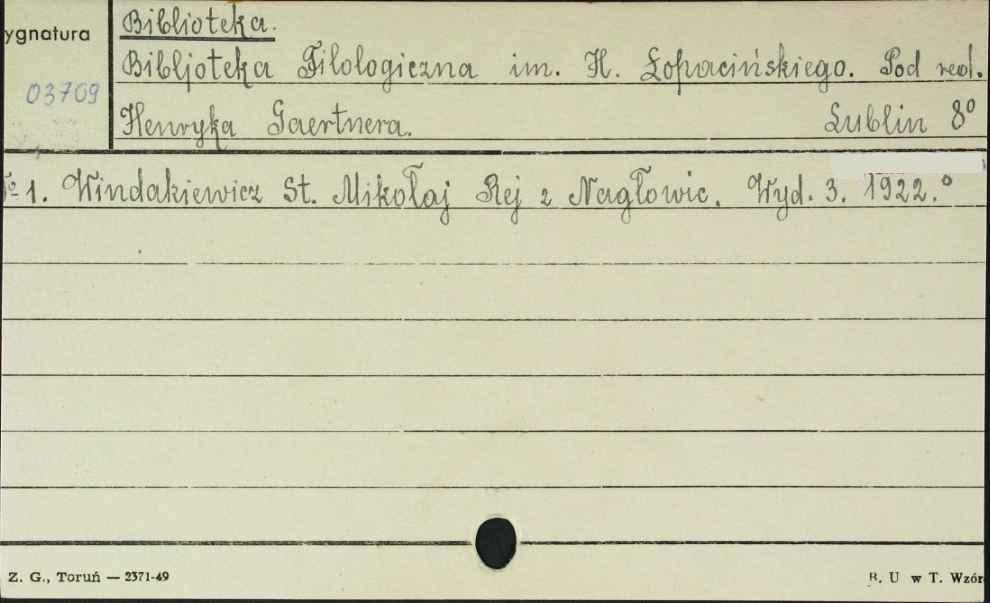 ygnatura
Biblioteka.
03709
Bibljoteka Filologiczna im. H. Łopacińskiego. Pod red.
Henryka Gaertnera. Lublin 8°
№ 1. Windakiewicz St. Mikołaj Rej z Nagłowic. Wyd. 3. 1922.°
Z. G., Toruń — 2371-49
B. U w T. Wzór